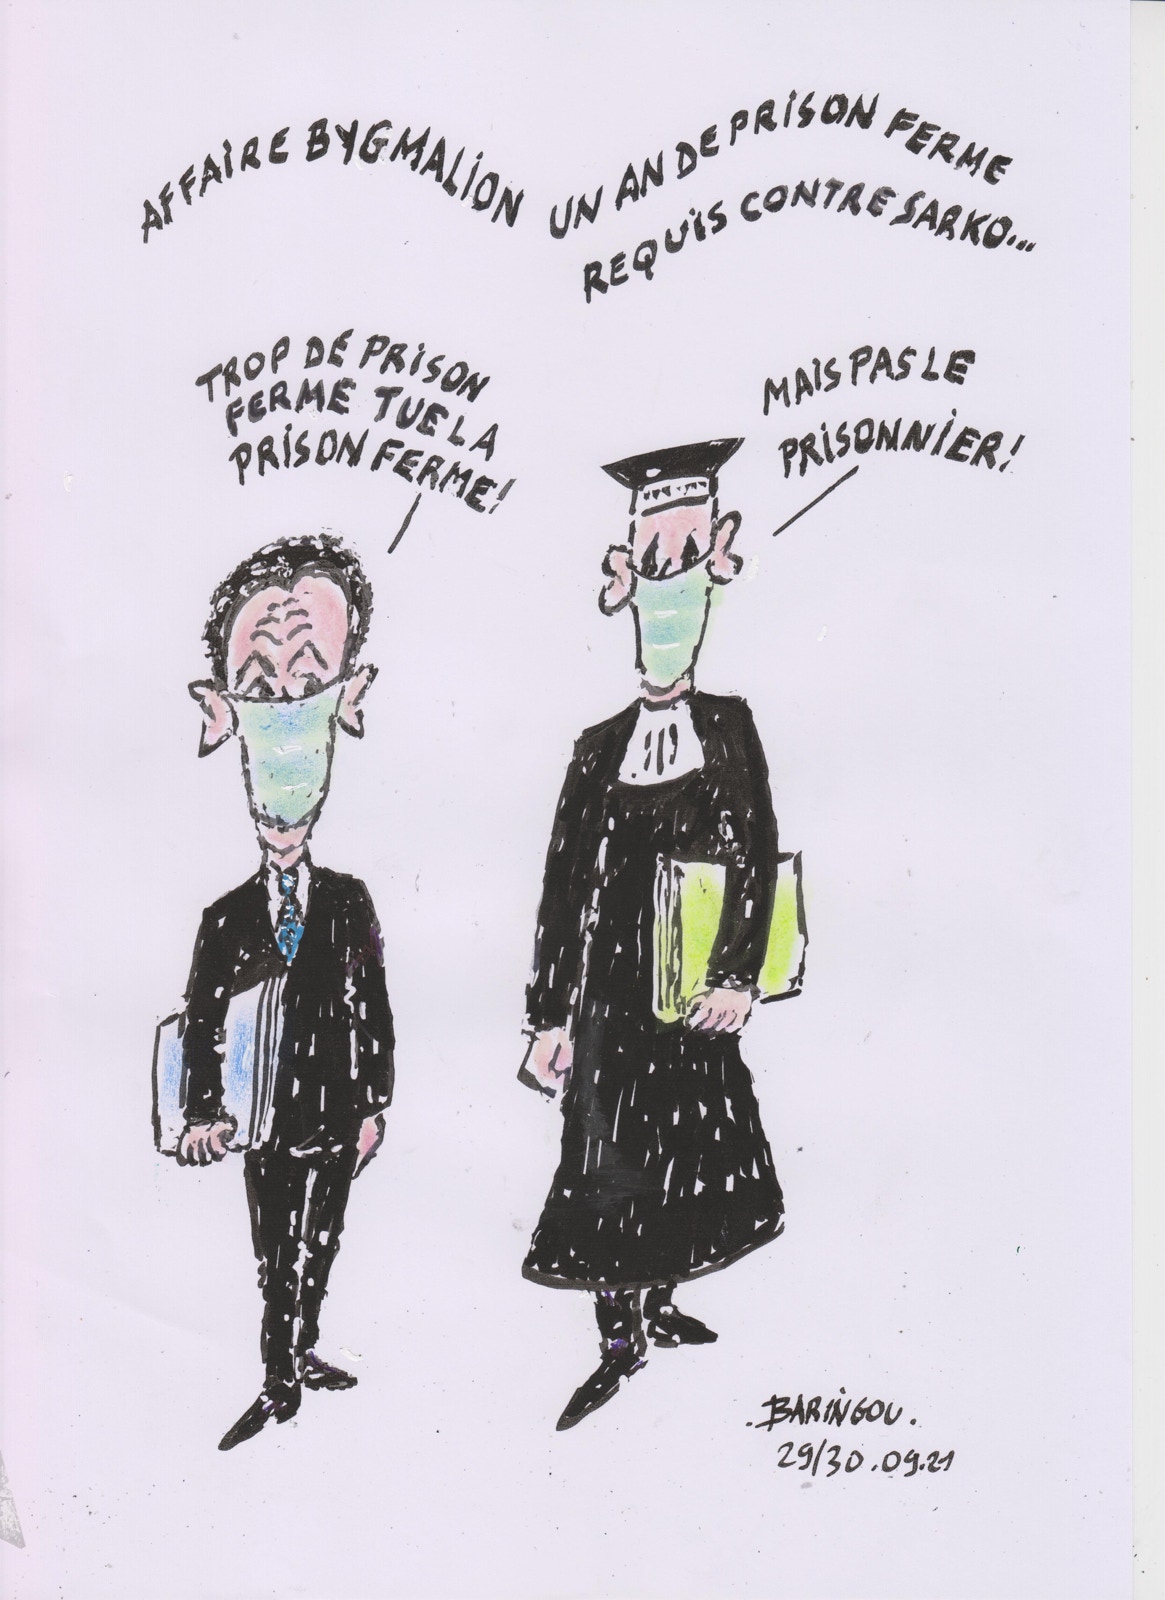 AFFAIRE BYGMALION UN AN DE PRISON FERME
REQUIS CONTRE SARKO...
TROP DE PRISON
FERME TUE LA
PRISON FERME!
MAIS PAS LE
PRISONNIER!
.BARINGOU.
29/30.09.21